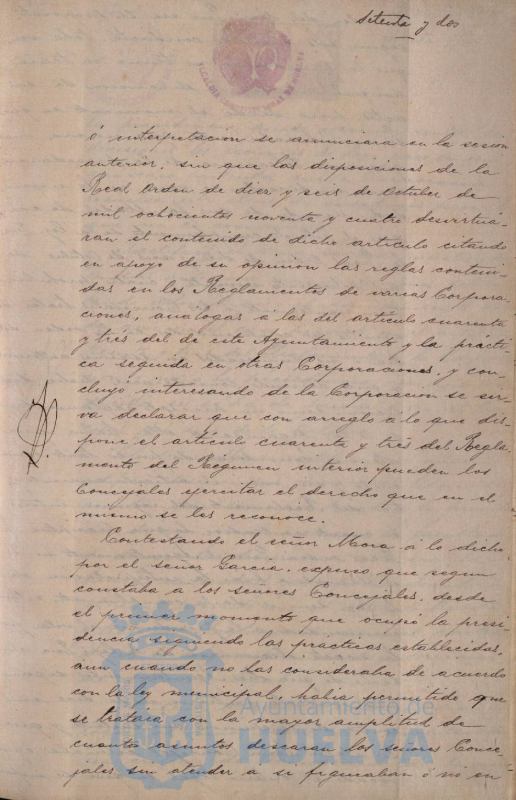 Setenta y dos
é interpretacion se anunciara en la sesion
anterior, sin que las disposiciones de la
Real Orden de diez y seis de Octubre de
mil ochocientos noventa y cuatro desvirtua-
ran el contenido de dicho artículo citando
en apoyo de su opinion las reglas conteni-
das en los Reglamentos de varias Corpora-
ciones, analogas á las del artículo cuarenta
y trés del de este Ayuntamiento y la prácti-
ca seguida en otras Corporaciones, y con-
cluyó interesando de la Corporacion se sir-
va declarar que con arreglo á lo que dis-
pone el artículo cuarenta y trés del Regla-
mento del Régimen interior pueden los
Concejales ejercitar el derecho que en el
mismo se les reconoce.
Contestando el señor Mora á lo dicho
por el señor Garcia, expuso que segun
constaba a los señores Concejales, desde
el primer momento que ocupó la presi-
dencia siguiendo las prácticas establecidas,
aun cuando no las consideraba de acuerdo
con la ley municipal, habia permitido que
se tratara con la mayor amplitud de
cuantos asuntos desearan los señores Conce-
jales sin atender a si figuraban ó no en
Ayuntamiento de
HUELVA